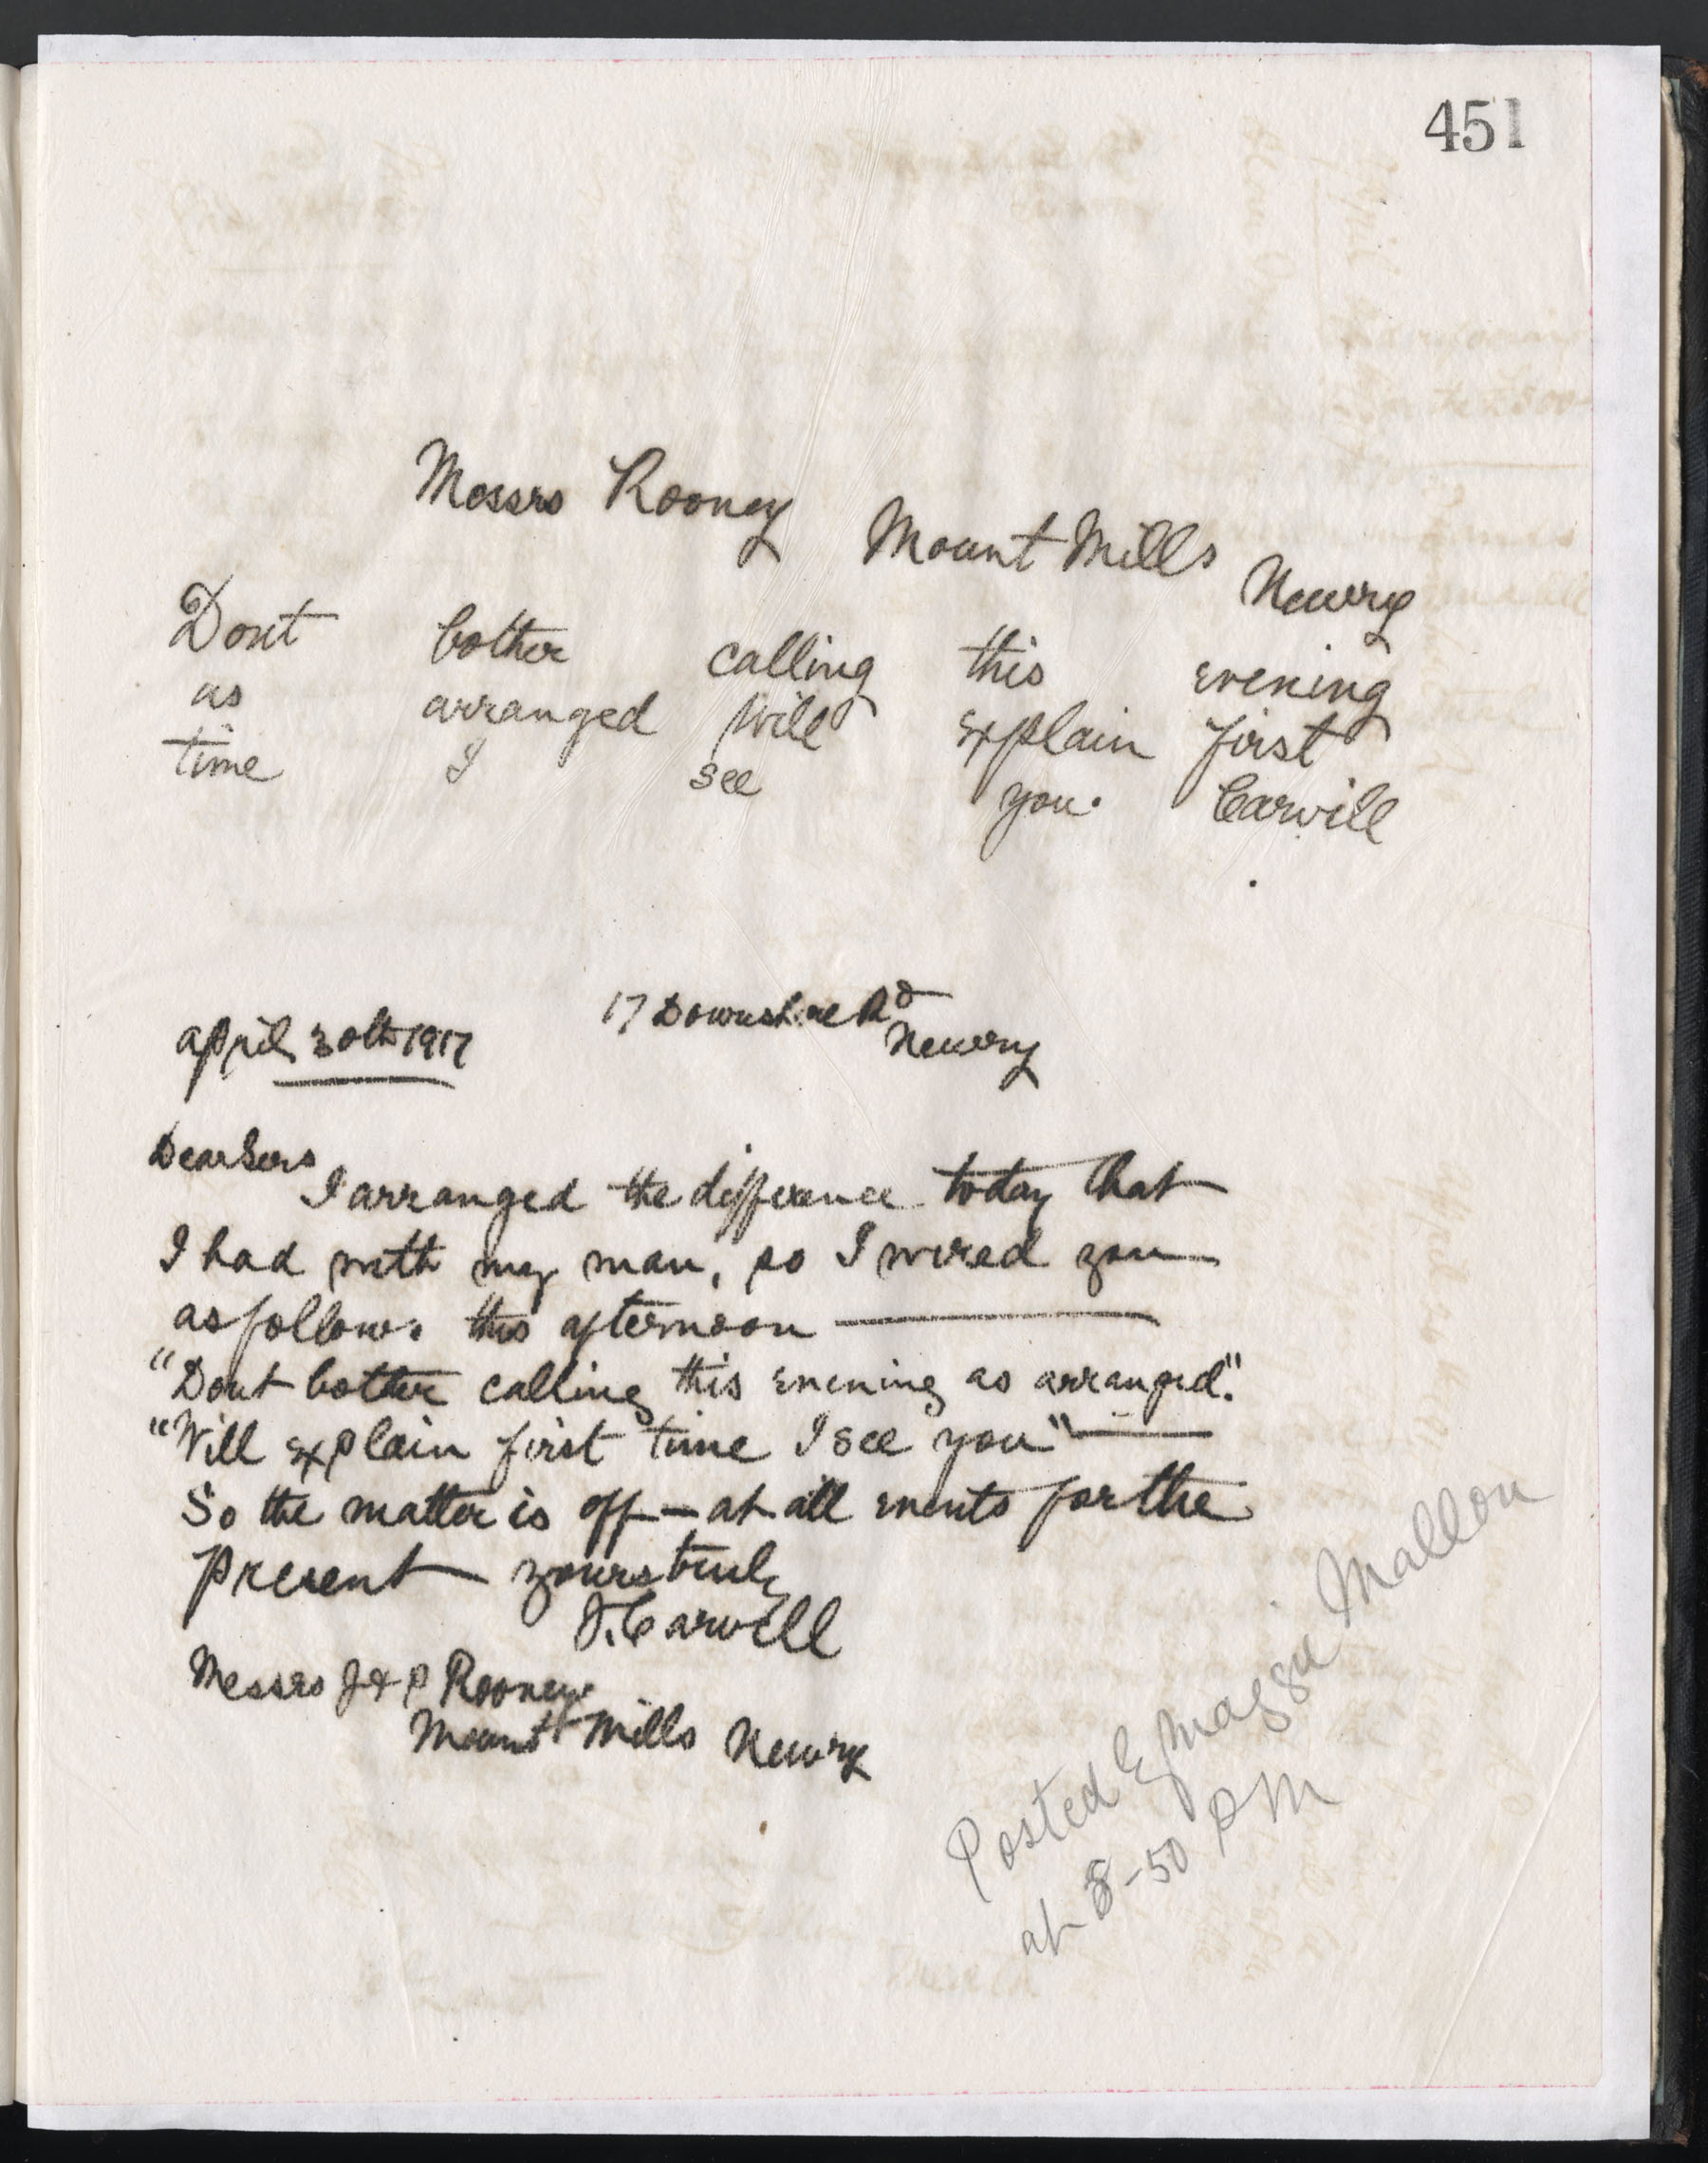 451
Messrs Rooney Mount Mills Newry
Dont bother calling this evening
as arranged Will explain first
time I see you. Carvill
17 Downshire Rd
Newry
April 30th 1917
Dear Sirs
I arranged the difference today that
I had with my man, so I wired you
as follows this afternoon —
"Dont bother calling this evening as arranged."
"Will explain first time I see you" —
So the matter is off — at all events for the
present yours truly
J. Carvill
Messrs J & P Rooney
Mount Mills Newry
Posted by Maggie Mallon
at 8-50 PM